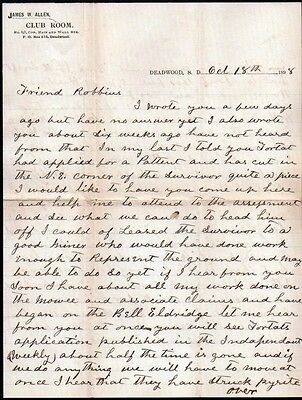 JAMES W. ALLEN,
CLUB ROOM.
No. 63, Cor. Main and Wall Sts.
P. O. Box 275, Deadwood.
DEADWOOD, S. D. Oct 18th 1898
Friend Robbins
I wrote you a few days
ago but have no answer yet I also wrote
you about six weeks ago have not heard
from that In my last I told you Tortat
had applied for a Pattent and has cut in
the N.E. corner of the Survivor quite a piece
I would like to have you come up here
and help me to attend to the assesment
and see what we can do to head him
off I could of Leased the Survivor to a
good miner who would have done work
Enough to Represent the ground and may
be able to do so yet if I hear from you
Soon I have about all my work done
on the Mowee and associate Claims and have
began on the Bell Eldridge let me hear
from you at once you will see Tortats
application published in the Independant
(Weekly) about half the time is gone and if
we do anything we will have to move at
once I hear that they have struck pyrite
over